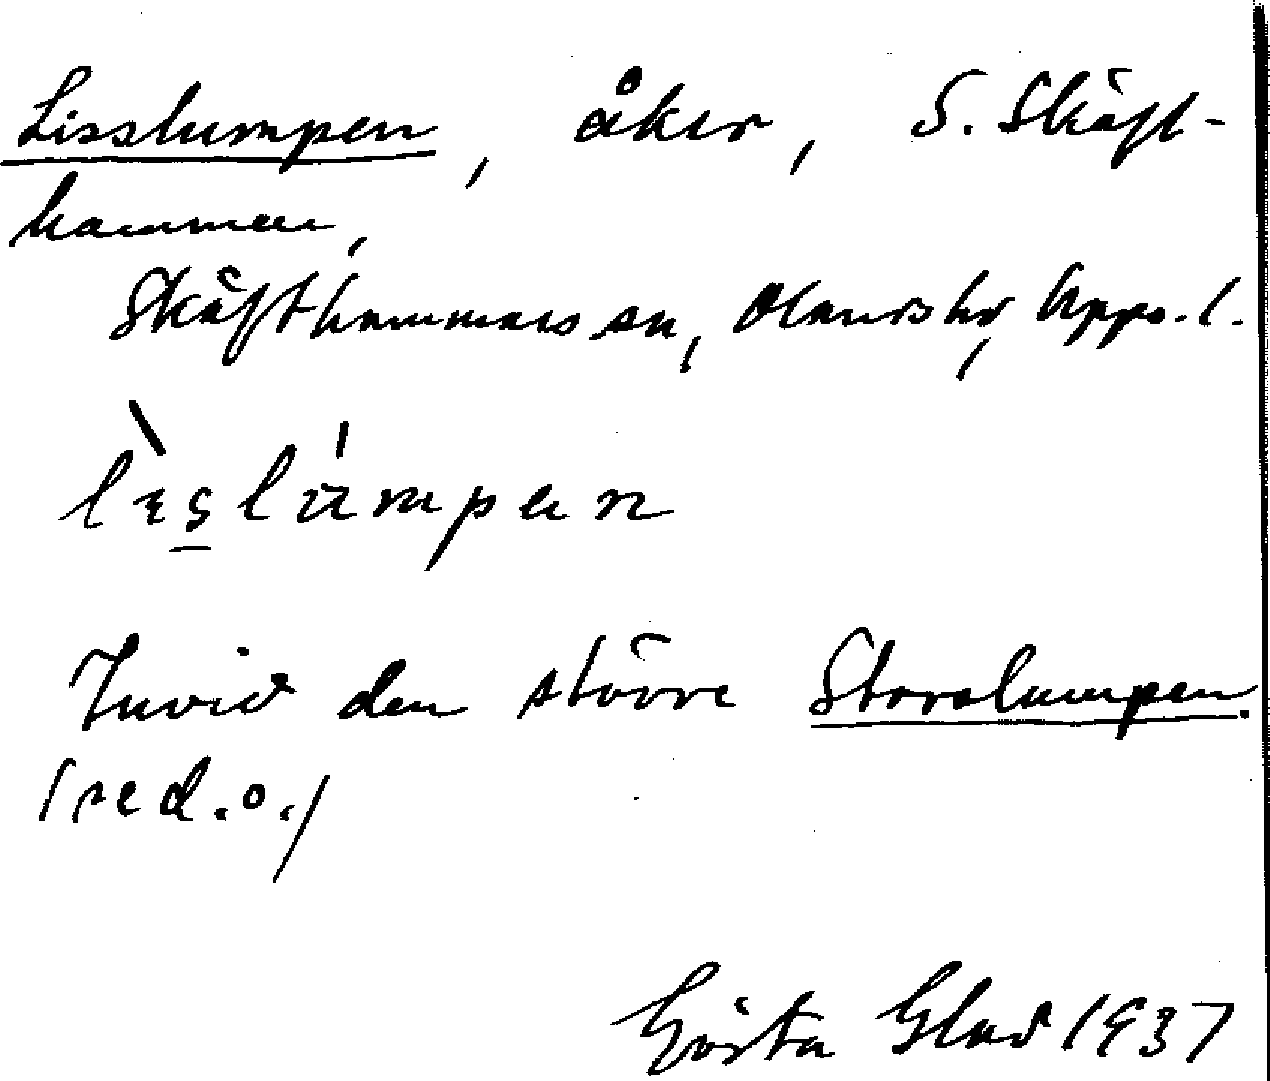 Lisslumpen, åker, S. Skäft-
hammar,
Skäfthammars sn, Olands hd, Upps. l.
lɪslumpan
Invid den större Storslumpen.
(se d.o.)
Gösta Glad 1937